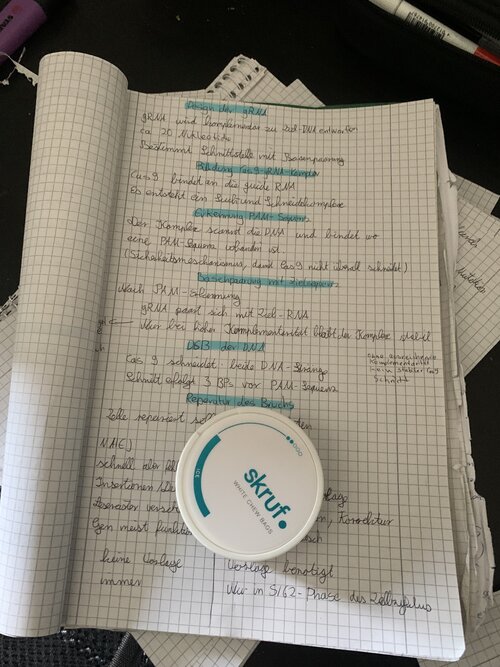 Design der gRNA
gRNA wird komplementär zu Ziel-DNA entworfen
ca 20 Nukleotide
Bestimmt Schnittstelle mit Basenpaarung
Bildung Cas9-gRNA-Komplex
Cas9 bindet an die guide RNA
Es entsteht ein Such und Schneidekomplex
Erkennung PAM-Sequenz
Der Komplex scannt die DNA und bindet wo
eine PAM-Sequenz vorhanden ist
(Sicherheitsmechanismus, damit Cas9 nicht überall schneidet)
Basenpaarung mit Zielsequenz
Nach PAM-Erkennung
gRNA paart sich mit Ziel-RNA
Nur bei hoher Komplementarität bleibt der Komplex stabil
ohne ausreichende
Komplementarität
kein stabiler Cas9
Schnitt
DSB der DNA
Cas9 schneidet beide DNA-Stränge
Schnitt erfolgt 3 BPs vor PAM-Sequenz
Reparatur des Bruchs
Zelle repariert
NHEJ
schnell aber
Insertionen
Leseraster
, Korrektur
Gen meist
keine Vorlage
Vorlage benötigt
immer
Nur in S/G2-Phase des Zellzyklus
skruf.
WHITE CHEW BAGS